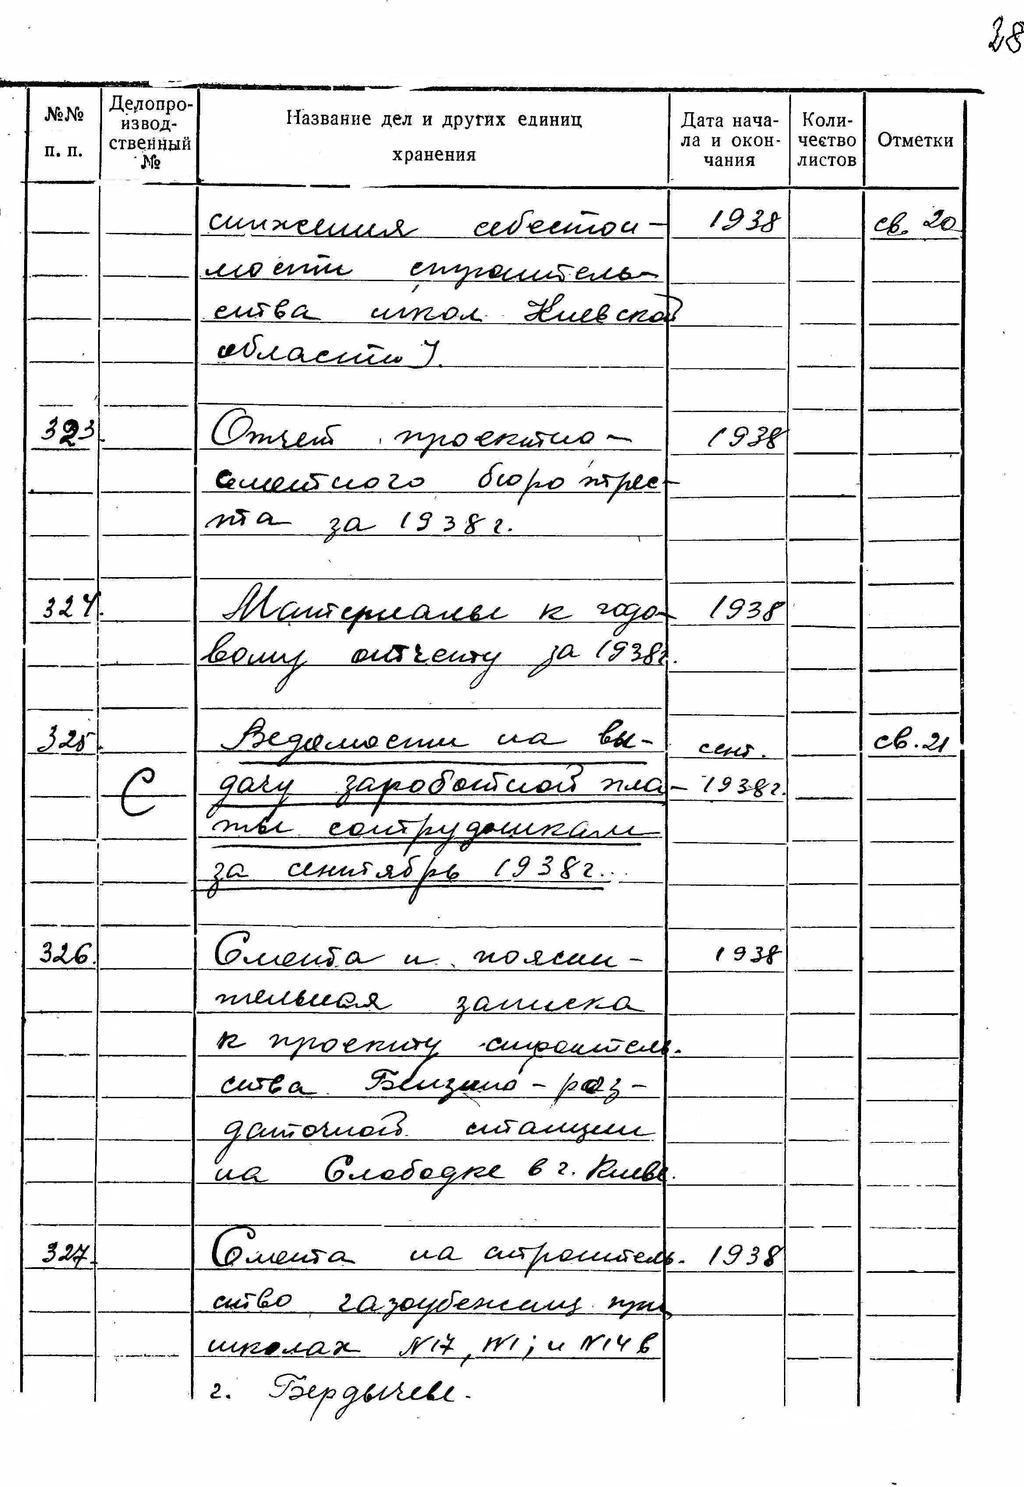 28
№№ п. п. Делопроизводственный № Название дел и других единиц хранения Дата начала и окончания Количество листов Отметки
снижения себестои- 1938 св. 20
мости строитель-
ства школ Киевской
области).
323. Отчет проектно- 1938
сметного бюро трес-
та за 1938 г.
324. Материалы к годо- 1938
вому отчету за 1938г.
325. Ведомости на вы- сент. св. 21
С дачу заработной пла- 1938г.
ты сотрудникам
за сентябрь 1938г.
326. Смета и поясни- 1938
тельная записка
к проекту строитель-
ства Бензино-раз-
даточной станции
на Слободке в г. Киеве.
327. Смета на строитель- 1938
ство газоубежищ при
школах N17, N1; и N14 в
г. Бердычеве.